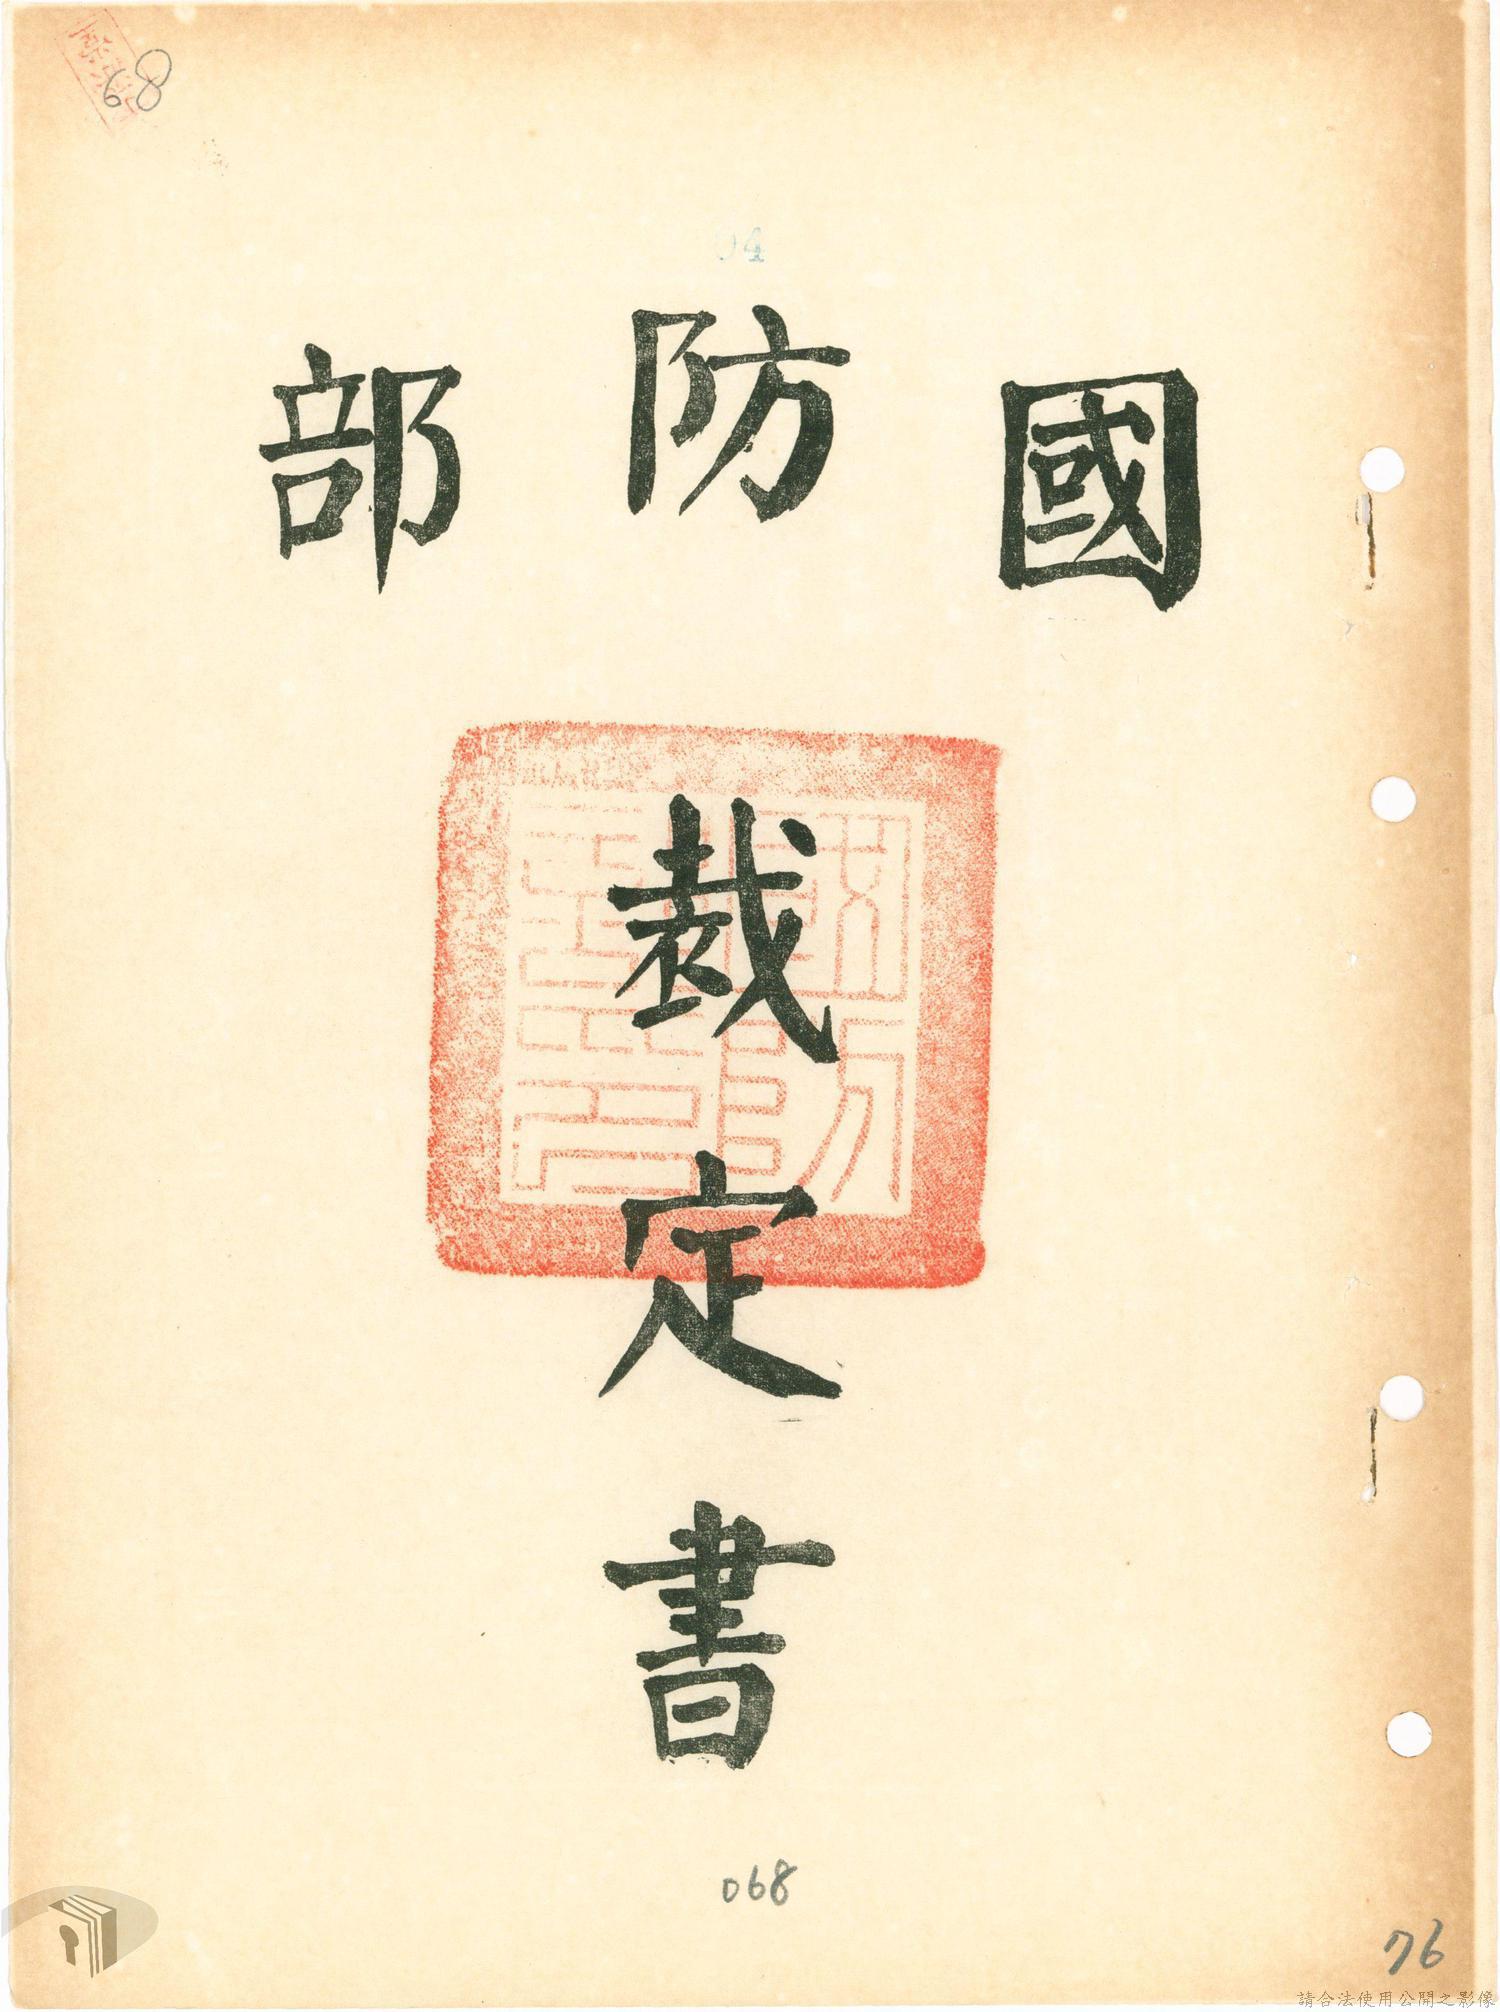 68
04
國防部
裁定書
068
76
請合法使用公開之影像